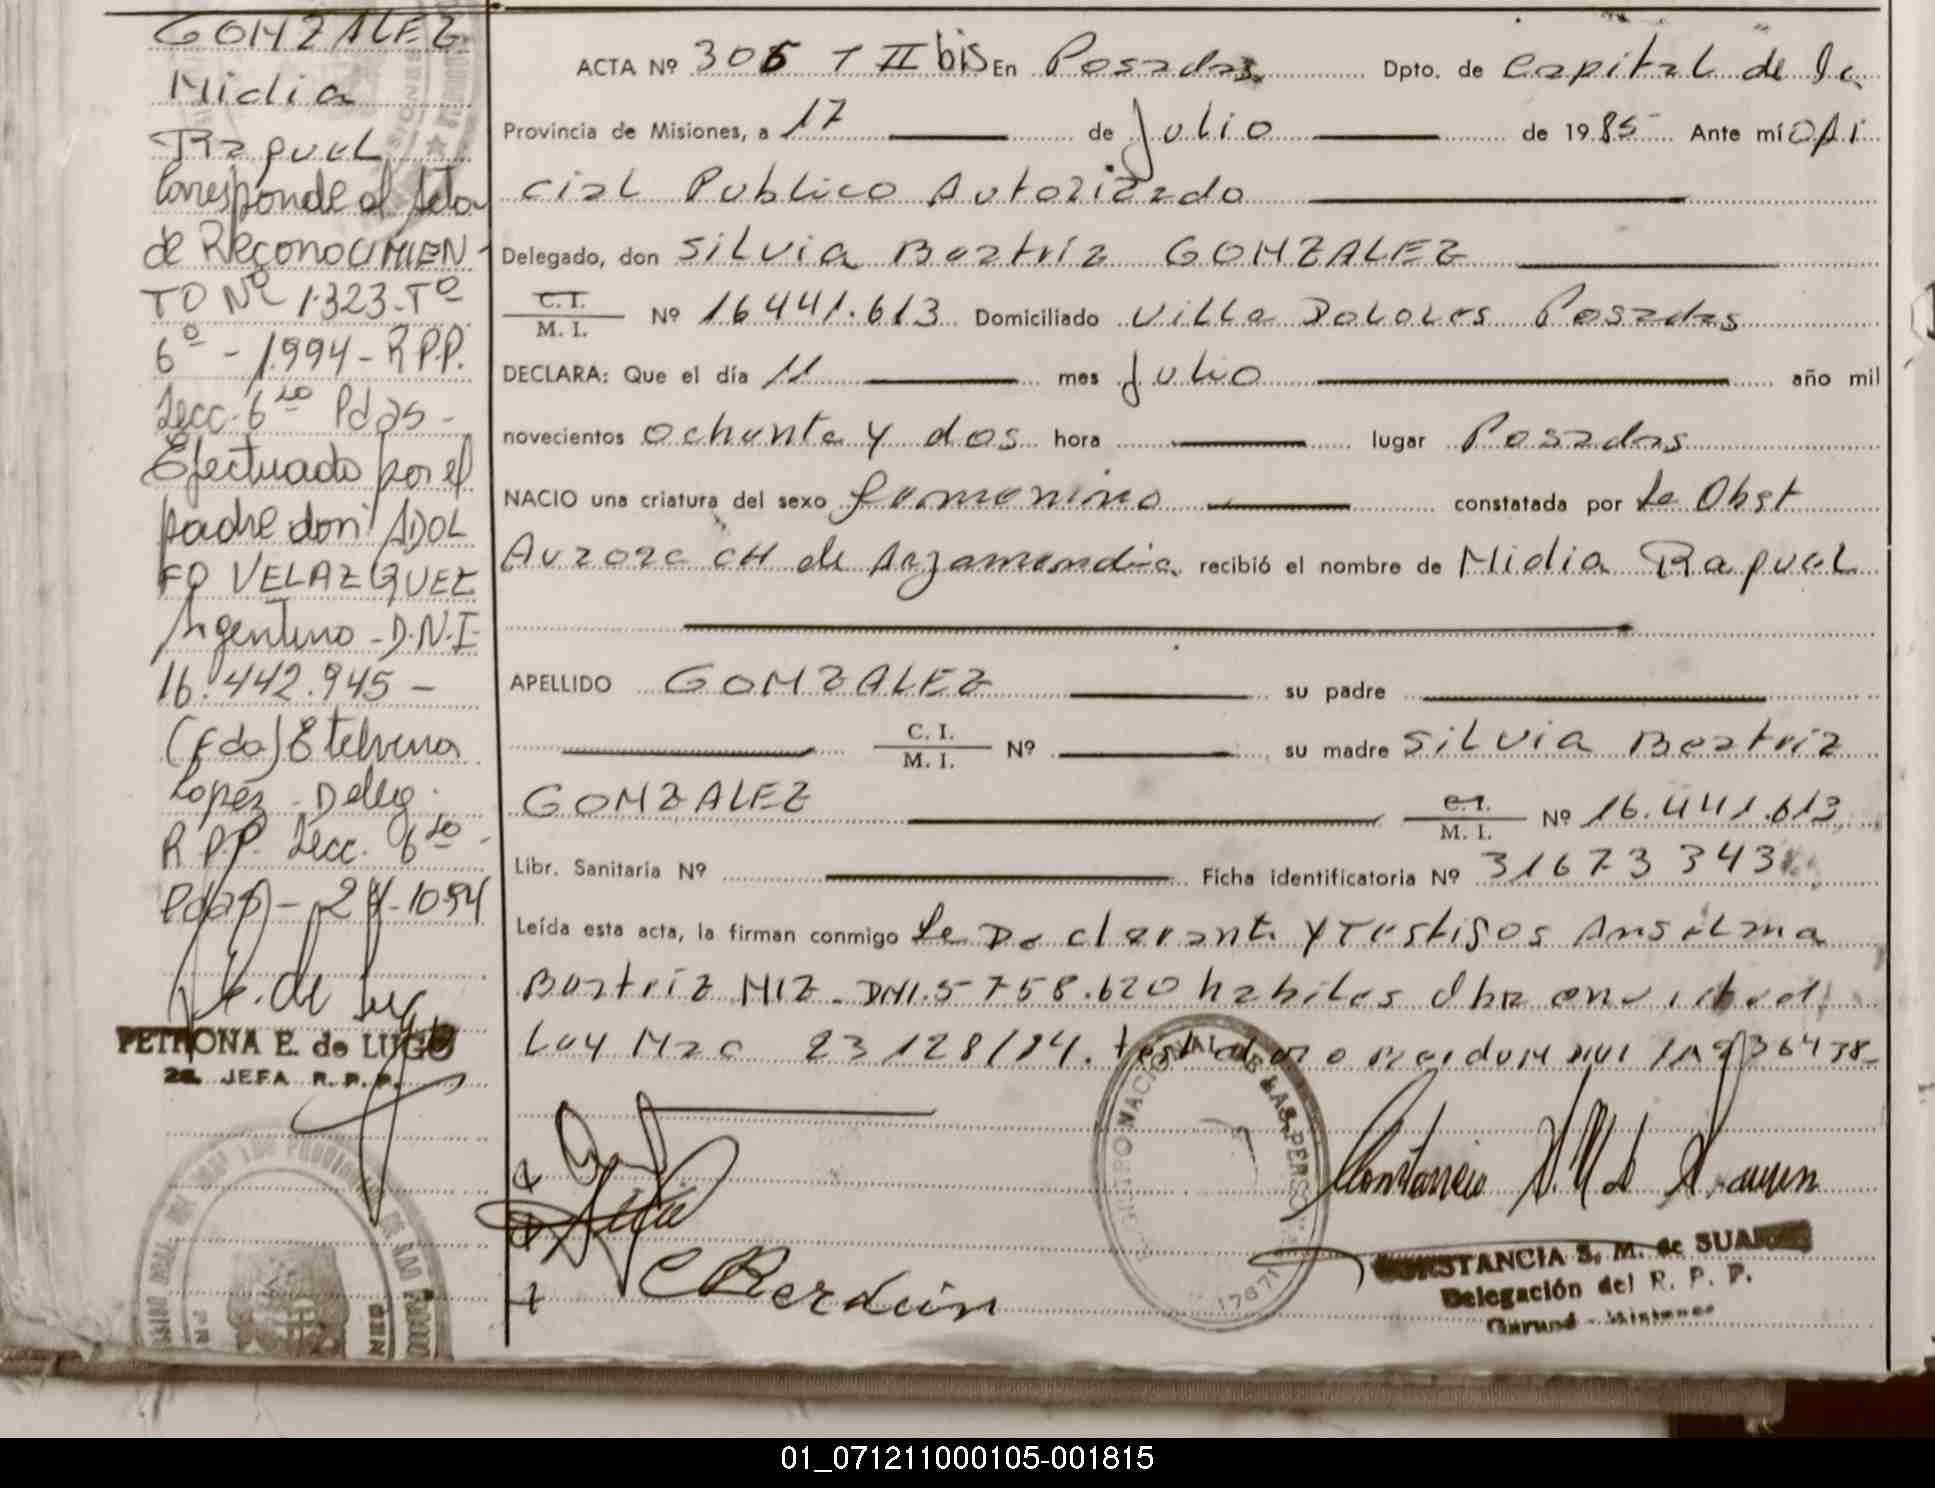 GONZALEZ
Nidia
Raquel
Corresponde al Acta
de RECONOCIMIEN-
TO Nº 1.323-Tº
6º - 1.994 - R.P.P.
Secc. 6ta Pdas -
Efectuado por el
padre don: ADOL
FO VELAZQUEZ
Argentino - D.N.I.
16.442.945 -
(Fdo) Etelvina
Lopez - Deleg.
R.P.P. Secc. 6ta -
Pdas - 24-10-94
PETRONA E. de LUGO
2a. JEFA R. P. P.
ACTA Nº 306 T II bis En Posadas Dpto. de Capital de la
Provincia de Misiones, a 17 de Julio de 1985 Ante mí Ofi
cial Publico Autorizado
Delegado, don Silvia Beatriz GONZALEZ
C.I. M.I. Nº 16441.613 Domiciliado Villa Dolores Posadas
DECLARA: Que el día 11 mes Julio año mil
novecientos ochenta y dos hora lugar Posadas
NACIO una criatura del sexo femenino constatada por la Obst
Aurora CH de Arzamendia recibió el nombre de Nidia Raquel
APELLIDO GONZALEZ su padre
C. I. M. I. Nº su madre Silvia Beatriz
GONZALEZ C.I. M. I. Nº 16.441.613
Libr. Sanitaria Nº Ficha identificatoria Nº 31673343
Leída esta acta, la firman conmigo la Declarante y Testigos Anselma
Beatriz MIZ - DNI. 5758.620 habiles
Ley Nac 23128/84.
REGISTRO NACIONAL DE LAS PERSO
17671
C Berdun
CONSTANCIA S. M. de SUAREZ
Delegación del R. P. P.
Garupá - Misiones
01_071211000105-001815